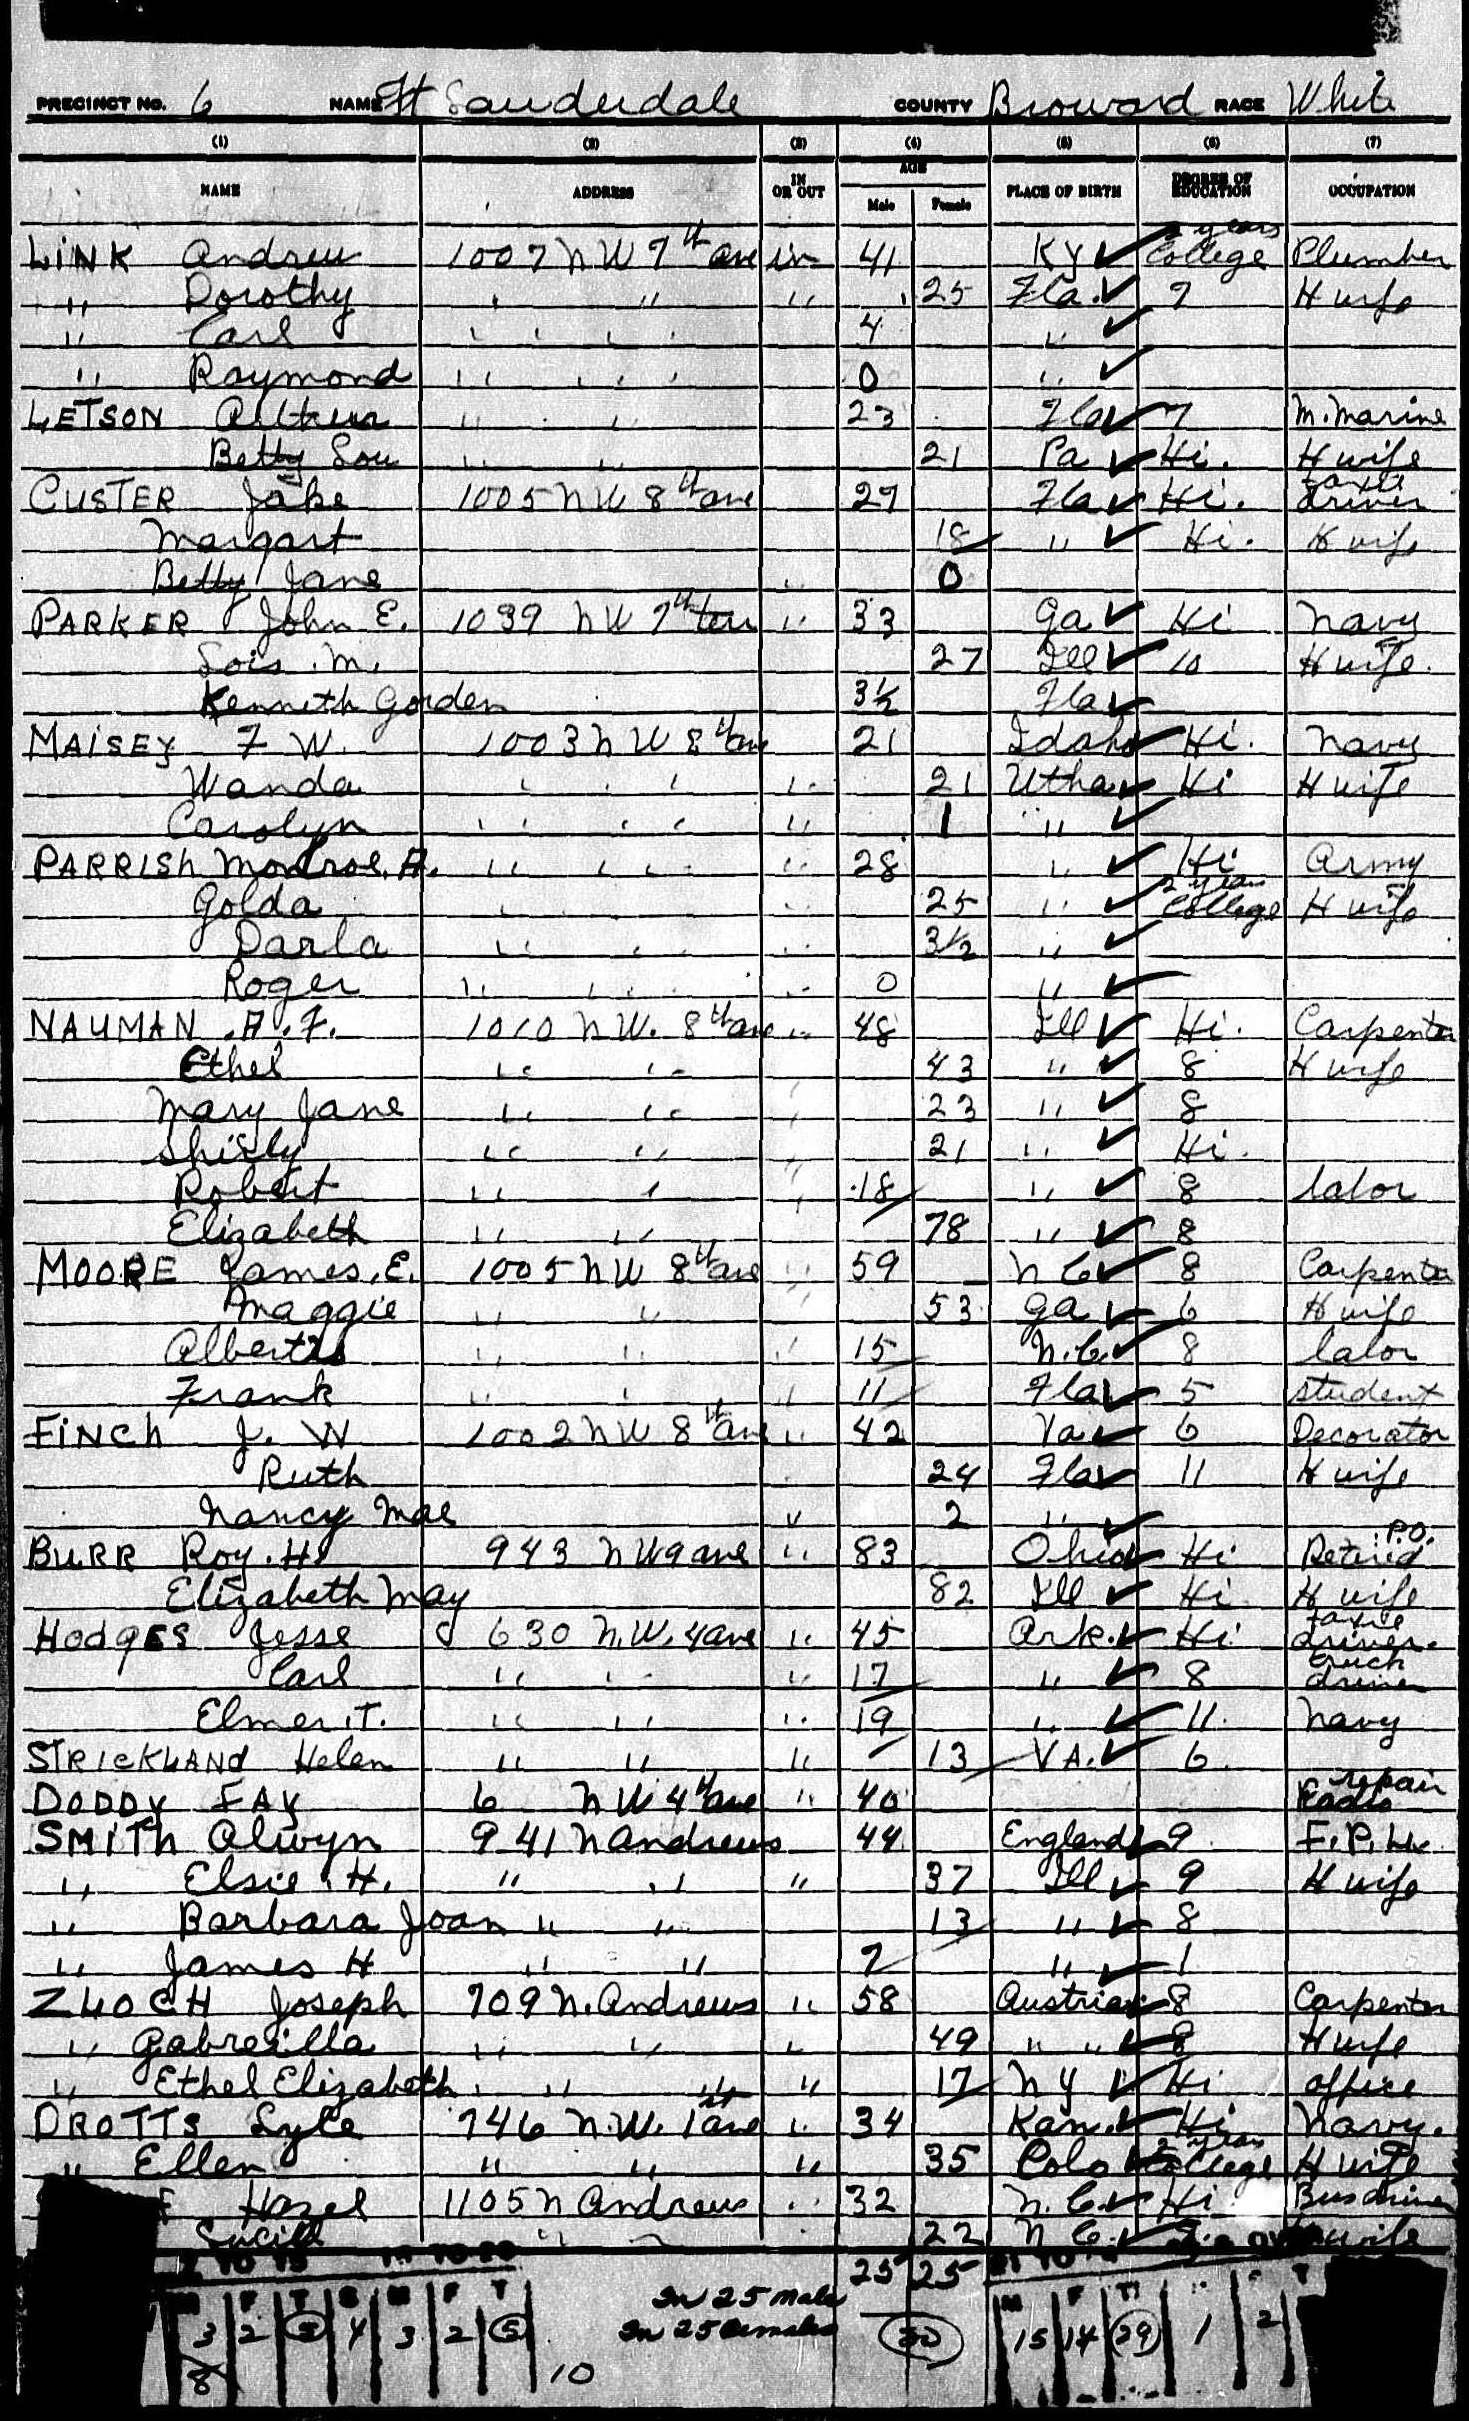 PRECINCT NO. 6 NAME Ft Lauderdale COUNTY Broward RACE White
(1) (2) (3) (4) (5) (6) (7)
NAME ADDRESS IN OR OUT AGE Male Female PLACE OF BIRTH DEGREE OF EDUCATION OCCUPATION
LINK Andrew 1007 NW 7th ave in 41 Ky years College Plumber
" Dorothy " " " 25 Fla. 7 H wife
" Carl " " " " 4 "
" Raymond " " " " 0 "
LETSON Arthur " " 23 Fla 7 M. Marine
Betty Lou " " 21 Pa Hi. H wife
CUSTER Jake 1005 NW 8th ave 29 Fla Hi. taxie driver
Margart 18 " Hi. H wife
Betty Jane " 0
PARKER John E. 1039 NW 7th ter " 33 Ga Hi Navy
Lois M. 27 Ill 10 H wife.
Kenneth Gorden 3½ Fla
MAISEY F W. 1003 NW 8th ave 21 Idaho Hi. Navy
Wanda " " " " 21 Utha Hi H wife
Carolyn " " " " " 1 "
PARRISH Monroe. A. " " " " " 28 " Hi Army
Golda " " " 25 " 2 years College H wife
Darla " " " 3½ "
Roger " " " " 0 "
NAUMAN A. F. 1010 NW. 8th ave " 48 Ill Hi. Carpenter
Ethel " " 43 " 8 H wife
Mary Jane " " " 23 " 8
Shirly " " " 21 " Hi.
Robert " " " 18 " 8 labor
Elizabeth " " 78 " 8
MOORE James. E. 1005 NW 8th ave " 59 N C 8 Carpenter
Maggie " " " 53 Ga 6 H wife
Albert " " " 15 N.C. 8 labor
Frank " " " 11 Fla 5 student
FINCH J. W 1002 NW 8th ave " 42 Va 6 Decorator
Ruth 24 Fla 11 H wife
Nancy Mae " 2 "
BURR Roy. H. 943 NW 9 ave " 83 Ohio Hi Retired P.O.
Elizabeth May 82 Ill Hi H wife
HODGES Jesse 630 N.W. 4 ave " 45 Ark. Hi taxie driver.
Carl " " " 17 " 8 truck driver
Elmer. T. " " " 19 " 11. Navy
STRICKLAND Helen " " " 13 VA. 6.
DODDY FAY 6 NW 4th ave " 40 Radio repair
SMITH Alwyn 941 N Andrews 44 England 9 F. P. L.
" Elsie. H. " " " 37 Ill 9 H wife
" Barbara Joan " " 13 " 8
" James H " " 7 " 1
ZLOCH Joseph 709 N. Andrews " 58 Austria 8 Carpenter
" Gabreilla " " " 49 " " 8 H wife
" Ethel Elizabeth " " " " 17 N Y Hi office
DROTTS Lyle 746 N.W. 1st ave " 34 Kan. Hi Navy.
" Ellen " " " 35 Colo 2 years College H wife
Hazel 1105 N Andrews " 32 N.C. Hi Bus driver
Lucill " " 22 N C. H wife
25 25
In 25 male
In 25 Females 50
M F T M F T M F T
3 2 5 4 3 2 5 15 14 29 1 2
8 10